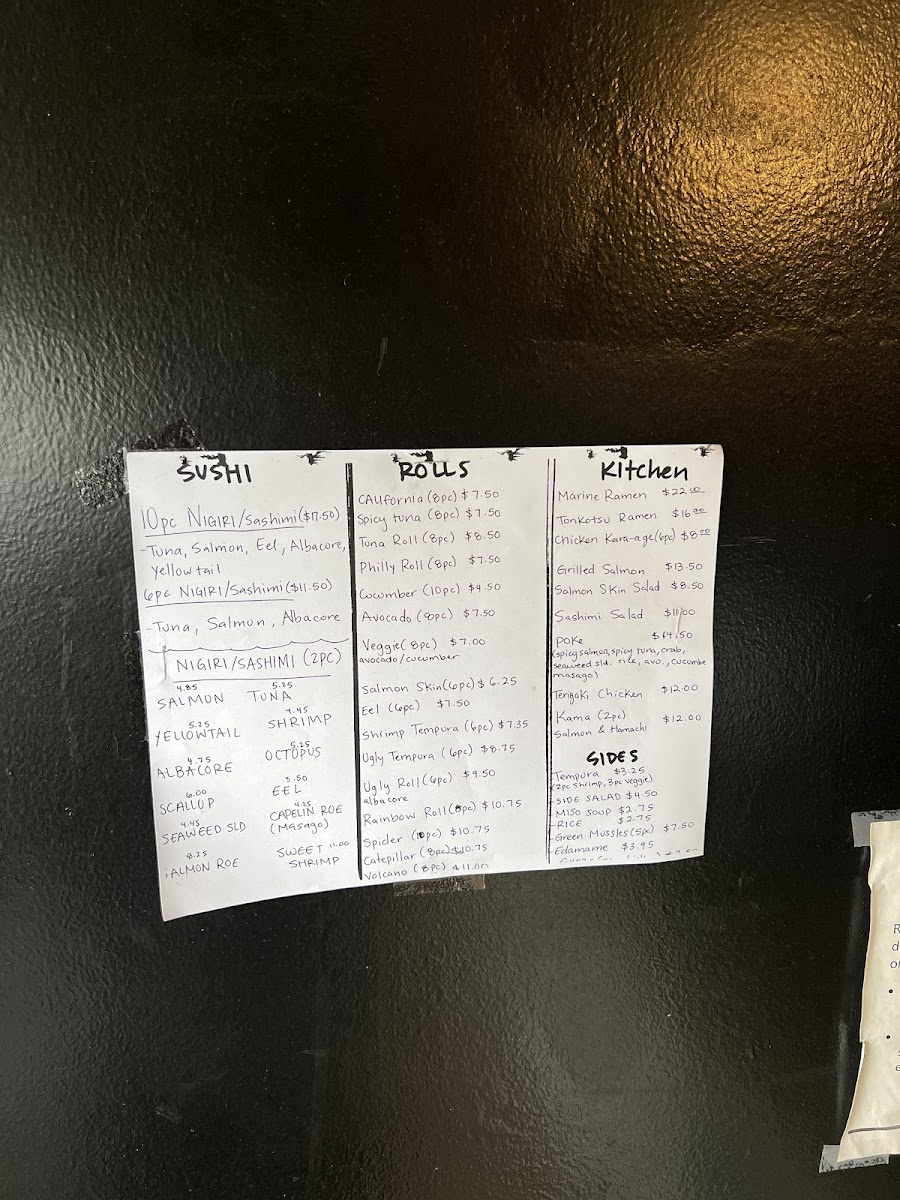 SUSHI
10pc NIGIRI/Sashimi ($17.50)
-Tuna, Salmon, Eel, Albacore,
yellowtail
6pc NIGIRI/Sashimi ($11.50)
-Tuna, Salmon, Albacore
NIGIRI/SASHIMI (2PC)
4.85 5.25
SALMON TUNA
5.25 4.45
YELLOWTAIL SHRIMP
4.75 5.25
ALBACORE OCTOPUS
6.00 5.50
SCALLOP EEL
4.45 4.25
SEAWEED SLD CAPELIN ROE
(Masago)
8.25 11.00
ALMON ROE SWEET
SHRIMP
ROLLS
CAlifornia (8pc) $7.50
Spicy tuna (8pc) $7.50
Tuna Roll (8pc) $8.50
Philly Roll (8pc) $7.50
Cucumber (10pc) $4.50
Avocado (8pc) $7.50
Veggie (8pc) $7.00
avocado/cucumber
Salmon Skin (6pc) $6.25
Eel (6pc) $7.50
Shrimp Tempura (6pc) $7.35
Ugly Tempura (6pc) $8.75
Ugly Roll (6pc) $9.50
albacore
Rainbow Roll (8pc) $10.75
Spider (10pc) $10.75
Catepillar (8pc) $10.75
Volcano (8pc) $11.00
Kitchen
Marine Ramen $22.00
Tonkotsu Ramen $16.00
Chicken Kara-age (6pc) $8.00
Grilled Salmon $13.50
Salmon Skin Salad $8.50
Sashimi Salad $11.00
Poke $14.50
(spicy salmon, spicy tuna, crab,
seaweed sld. rice, avo., cucumbe
masago)
Teriyaki Chicken $12.00
Kama (2pc) $12.00
Salmon & Hamachi
SIDES
-Tempura $3.25
(2pc shrimp, 3pc veggie)
-SIDE SALAD $4.50
-MISO SOUP $2.75
-RICE $2.75
-Green Mussles (5pc) $7.50
-Edamame $3.95